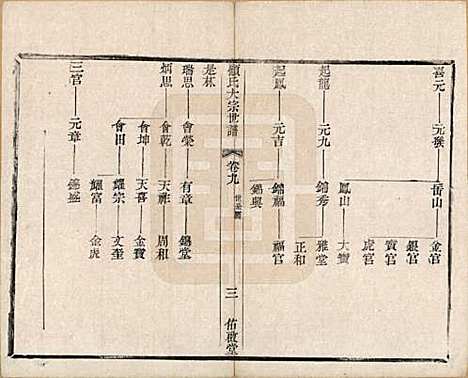 喜元 元 岳山 金官
銀官
寳官
虎官
鳳山 大
起龍 元九 錦秀 雅堂
正和
起鳳 元吉 錦福 福官
錦興
顧氏大宗世譜
卷九 世系圖 三 佑啟堂
是林
瑞思 會榮 有章 錫堂
炳思 會乾 天祥 周和
會坤 天喜 金寶
會田 耀宗 文奎
耀富 金虎
三官 元章 錦盛